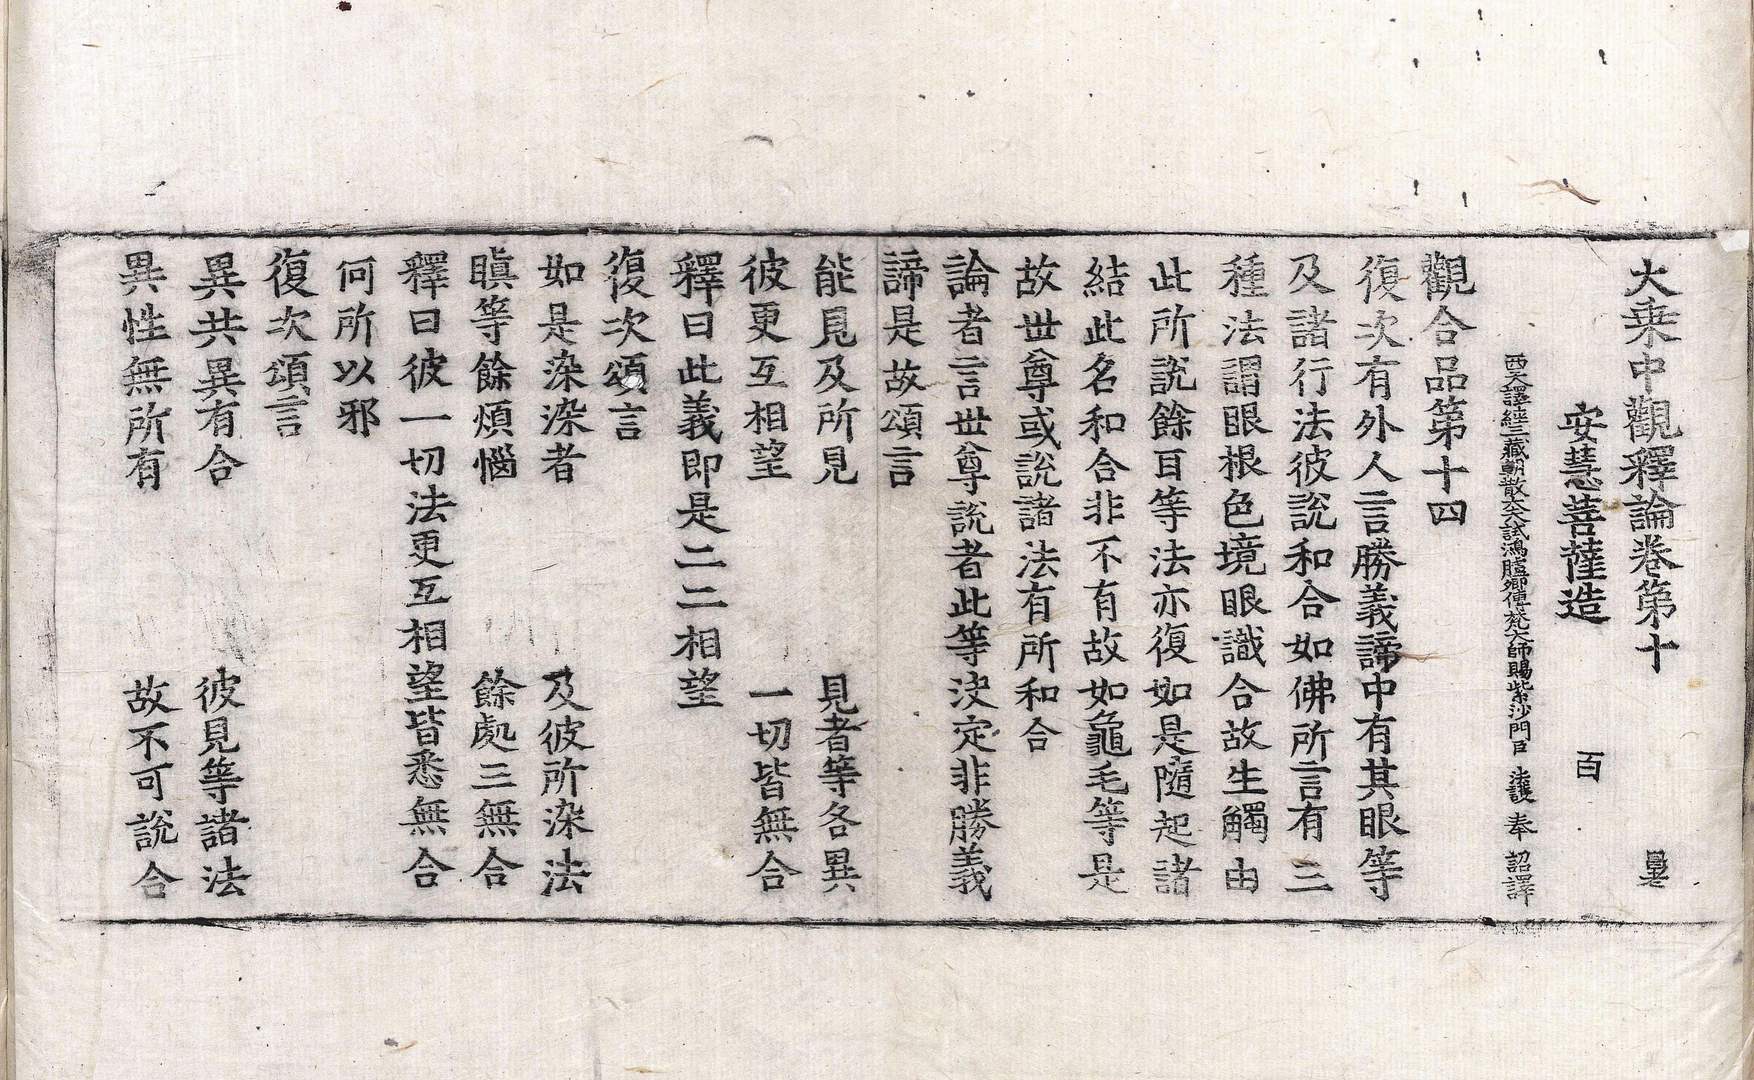 大乗中觀釋論卷第十
安慧菩薩造 百
西天譯經三藏朝散大夫試鴻臚卿傳梵大師賜紫沙門臣 法護 奉 詔譯
觀合品第十四
復次有外人言勝義諦中有其眼等
及諸行法彼說和合如佛所言有三
種法謂眼根色境眼識合故生觸由
此所說餘百等法亦復如是隨起諸
結此名和合非不有故如龜毛等是
故世尊或說諸法有所和合
論者言世尊說者此等決定非勝義
諦是故頌言
能見及所見 見者等各異
彼更互相望 一切皆無合
釋曰此義即是二二相望
復次頌言
如是染染者 及彼所染法
瞋等餘煩惱 餘處三無合
釋曰彼一切法更互相望皆悉無合
何所以邪
復次頌言
異共異有合 彼見等諸法
異性無所有 故不可說合